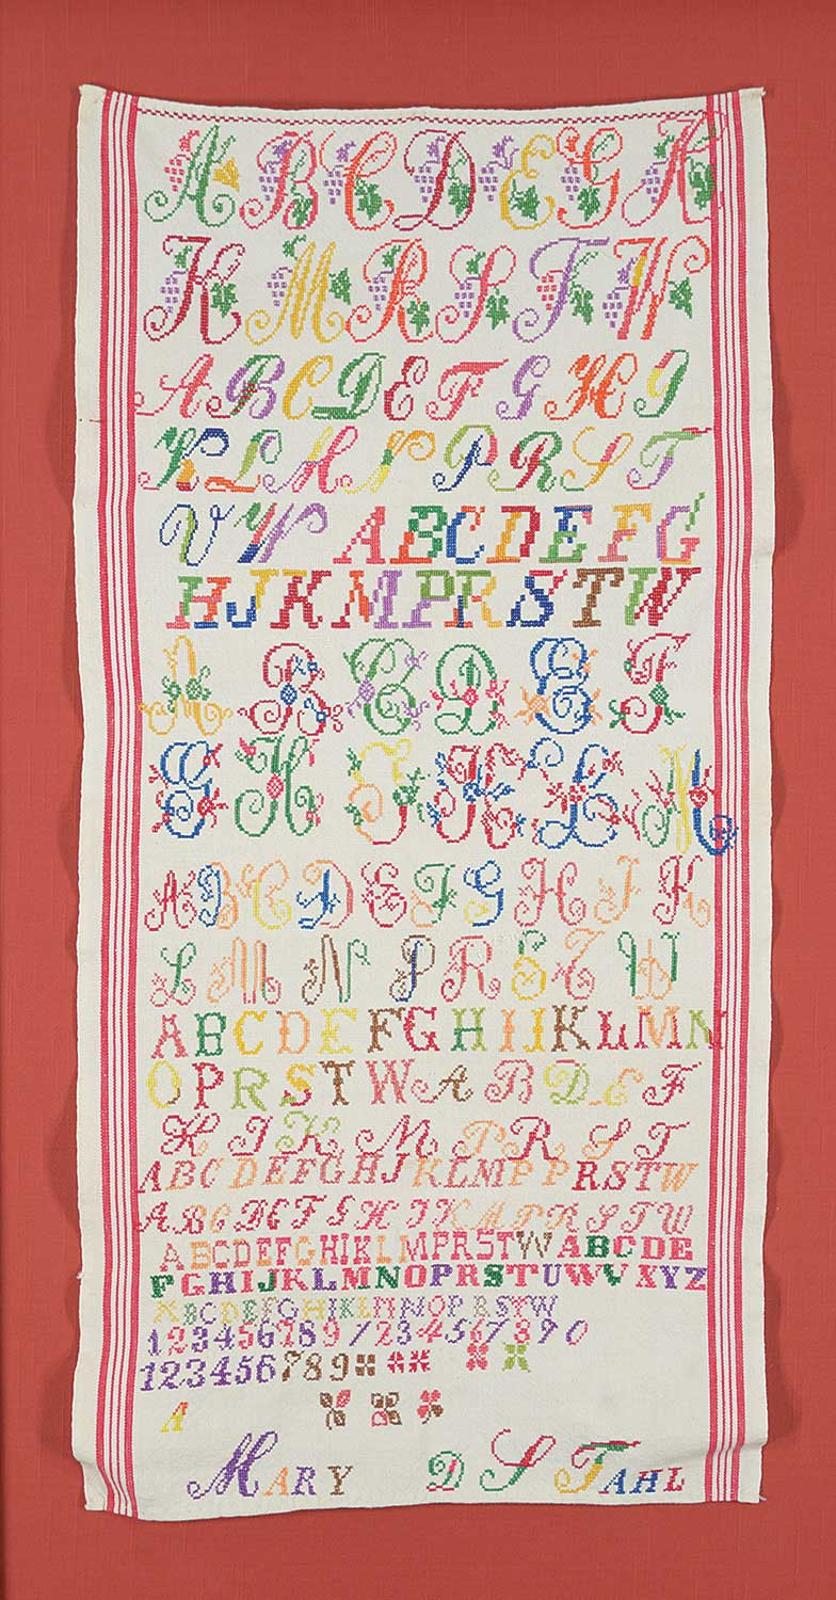 A B C D E G H
K M R S T W
A B C D E F G H I
K L M N P R S T
V W A B C D E F G
H J K M P R S T W
A B C D E F
G H J K L M
A B C D E F G H J K
L M N P R S T W
A B C D E F G H I J K L M N
O P R S T W A B D E F
H J K M P R S T
A B C D E F G H J K L M P P R S T W
A B C D E F G H J K M P R S T W
A B C D E F G H I K L M P R S T W A B C D E
F G H I J K L M N O P R S T U W V X Y Z
B C D E F G H I K L M N O P R S T W
1 2 3 4 5 6 7 8 9 1 2 3 4 5 6 7 8 9 0
1 2 3 4 5 6 7 8 9
A
MARY D STAHL